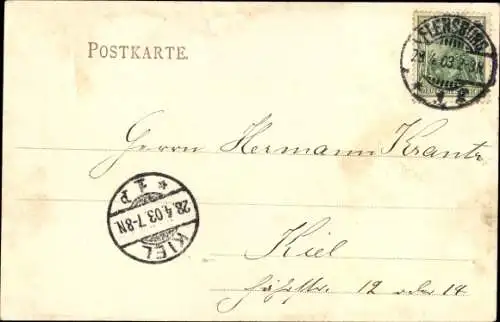 POSTKARTE.
FLENSBURG
28.4.03.7-8N.
* 1 P
Herrn Hermann Krantz
* 1 P
28.4.03.7-8N.
KIEL
Kiel
12 oder 14